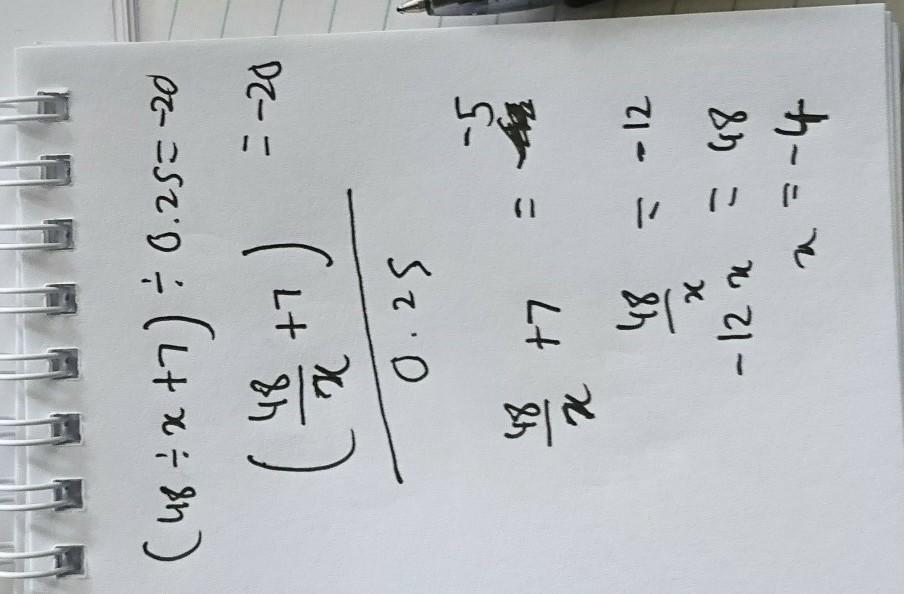 (48 ÷ x + 7) ÷ 0.25 = -20
(48/x + 7) / 0.25 = -20
48/x + 7 = -5
48/x = -12
-12x = 48
x = -4